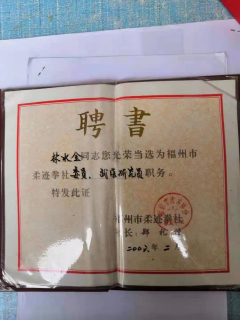 聘書
林水金同志您光荣当选为福州市
柔迹拳社委员、兼研究员职务。
特发此证
福州市柔迹拳社
社长：郑礼
2002年2月